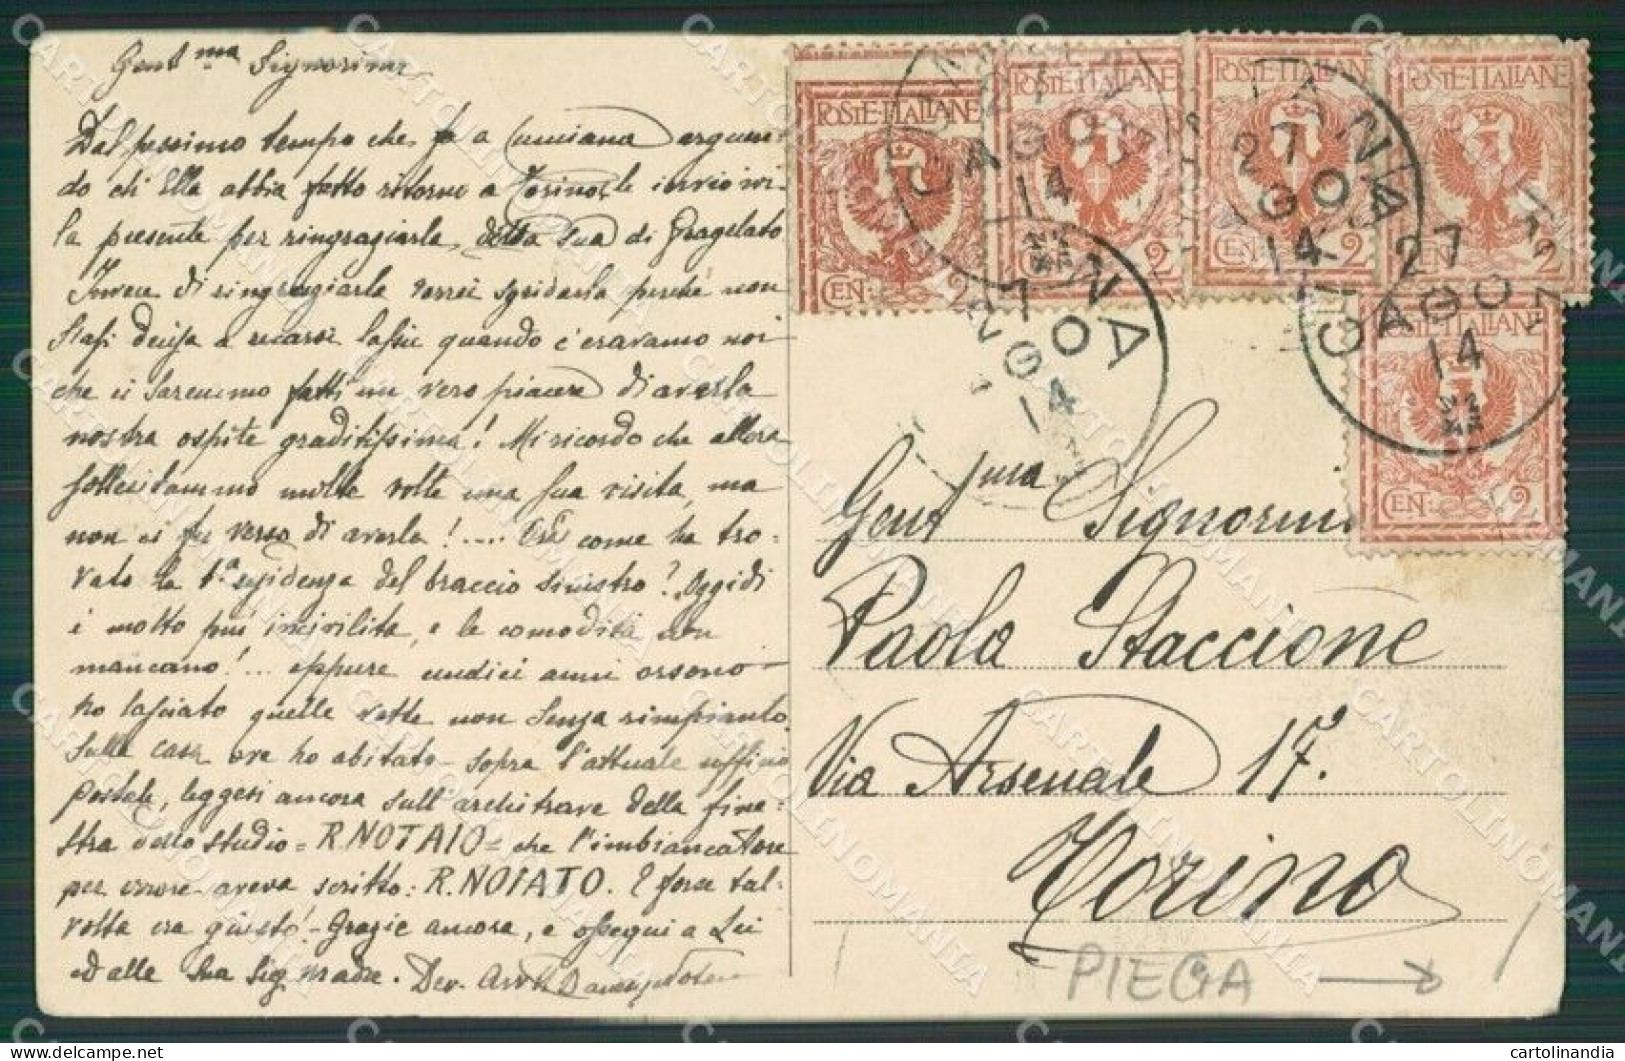 Gent.ma Signorina
Dal pessimo tempo che fa a Cumiana argomen-
do ch'Ella abbia fatto ritorno a Torino, le invio ivi-
la presente per ringraziarla della sua di Pragelato
Invece di ringraziarla vorrei sgridarla perché non
siasi decisa a recarsi lassù quando c'eravamo noi
che ci saremmo fatti un vero piacere di averla
nostra ospite graditissima! Mi ricordo che allora
sollecitammo molte volte una sua visita, ma
non ci fu verso di averla!.... Ora come ha tro-
vato la 1a residenza del braccio sinistro? Oggidì
è molto più incivilita, e le comodità non
mancano!... eppure undici anni orsono
ho lasciato quelle vette non senza rimpianto.
Sulla casa ove ho abitato sopra l'attuale ufficio
postale, leggesi ancora sull'architrave della fine=
stra dello studio = R. NOTAIO = che l'imbiancatore
per errore aveva scritto: R. NOIATO. E forse tal-
volta era giusto! - Grazie ancora, e ossequi a Lei
ed alla Sua Sig. madre. Dev.
POSTE-ITALIANE
CEN. 2
POSTE-ITALIANE
CEN. 2
POSTE-ITALIANE
CEN. 2
POSTE-ITALIANE
CEN. 2
POSTE-ITALIANE
CEN. 2
27
AGO
14
27
AGO
14
27
AGO
14
Gent.ma Signorina
Paola Staccione
Via Arsenale 17.
Torino
PIEGA →
cartolinandia